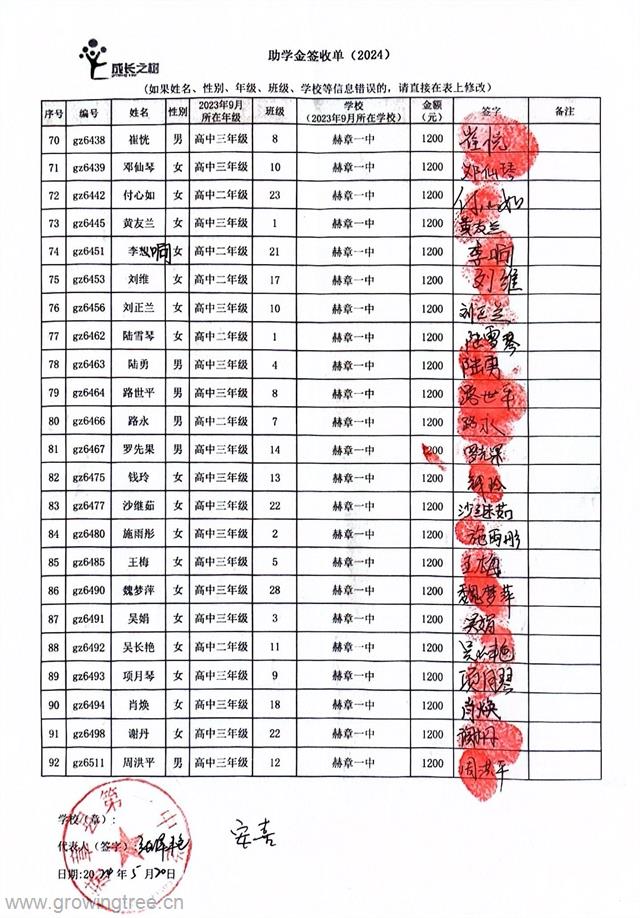 成长之树
growing tree
助学金签收单（2024）
(如果姓名、性别、年级、班级、学校等信息错误的，请直接在表上修改)
序号 编号 姓名 性别 2023年9月所在年级 班级 学校（2023年9月所在学校） 金额（元） 签字 备注
70 gz6438 崔恍 男 高中三年级 8 赫章一中 1200 崔恍
71 gz6439 邓仙琴 女 高中三年级 10 赫章一中 1200 邓仙琴
72 gz6442 付心如 女 高中二年级 23 赫章一中 1200 付心如
73 gz6445 黄友兰 女 高中三年级 1 赫章一中 1200 黄友兰
74 gz6451 李想响 女 高中二年级 21 赫章一中 1200 李响
75 gz6453 刘维 女 高中二年级 17 赫章一中 1200 刘维
76 gz6456 刘正兰 女 高中三年级 10 赫章一中 1200 刘正兰
77 gz6462 陆雪琴 女 高中二年级 1 赫章一中 1200 陆雪琴
78 gz6463 陆勇 男 高中三年级 4 赫章一中 1200 陆勇
79 gz6464 路世平 男 高中三年级 8 赫章一中 1200 路世平
80 gz6466 路永 男 高中二年级 7 赫章一中 1200 路永
81 gz6467 罗先果 男 高中三年级 14 赫章一中 1200 罗先果
82 gz6475 钱玲 女 高中三年级 13 赫章一中 1200 钱玲
83 gz6477 沙维茹 女 高中三年级 22 赫章一中 1200 沙维茹
84 gz6480 施雨彤 女 高中三年级 2 赫章一中 1200 施雨彤
85 gz6485 王梅 女 高中三年级 5 赫章一中 1200 王梅
86 gz6490 魏梦萍 女 高中三年级 28 赫章一中 1200 魏梦萍
87 gz6491 吴娟 女 高中三年级 3 赫章一中 1200 吴娟
88 gz6492 吴长艳 女 高中二年级 11 赫章一中 1200 吴长艳
89 gz6493 项月琴 女 高中三年级 9 赫章一中 1200 项月琴
90 gz6494 肖焕 女 高中三年级 18 赫章一中 1200 肖焕
91 gz6498 谢丹 女 高中三年级 22 赫章一中 1200 谢丹
92 gz6511 周洪平 男 高中三年级 12 赫章一中 1200 周洪平
学校（章）：
代表人（签字）： 安喜
日期:2024年5月20日
www.growingtree.cn